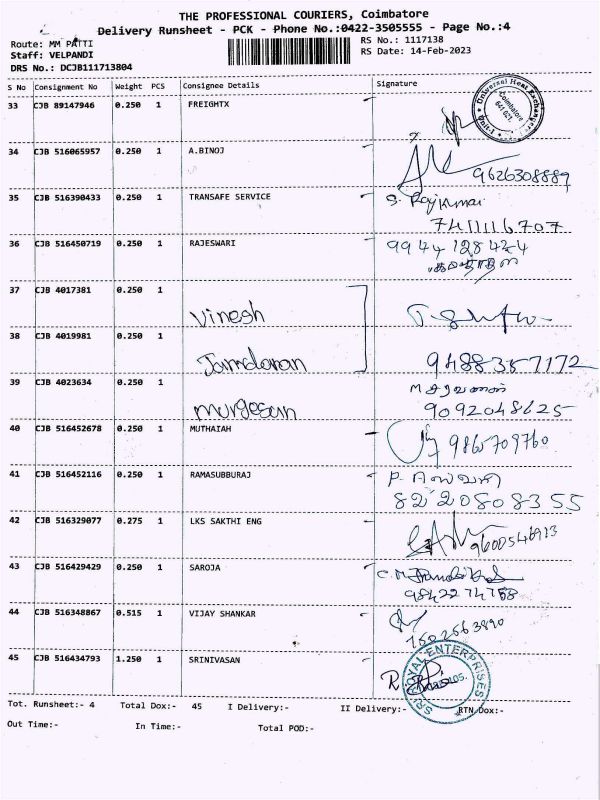 THE PROFESSIONAL COURIERS, Coimbatore
Delivery Runsheet - PCK - Phone No.:0422-3505555 - Page No.:4
Route: MM PATTI
Staff: VELPANDI
DRS No.: DCJB111713804
RS No.: 1117138
RS Date: 14-Feb-2023
S No Consignment No Weight PCS Consignee Details Signature
33 CJB 89147946 0.250 1 FREIGHTX
Universal Heat Exchangers Unit-I Coimbatore 641 021.
34 CJB 516065957 0.250 1 A.BINOJ 9626308889
35 CJB 516390433 0.250 1 TRANSAFE SERVICE S. Rajkumar
7411116707
36 CJB 516450719 0.250 1 RAJESWARI 9944128424
37 CJB 4017381 0.250 1
Vinesh
38 CJB 4019981 0.250 1
9488357172
39 CJB 4023634 0.250 1
Murgesan 9092048625
40 CJB 516452678 0.250 1 MUTHAIAH 9865709760
41 CJB 516452116 0.250 1 RAMASUBBURAJ
8220808355
42 CJB 516329077 0.275 1 LKS SAKTHI ENG
9600546913
43 CJB 516429429 0.250 1 SAROJA
9842274758
44 CJB 516348867 0.515 1 VIJAY SHANKAR
45 CJB 516434793 1.250 1 SRINIVASAN
SRI ROYAL ENTERPRISES
Tot. Runsheet:- 4 Total Dox:- 45 I Delivery:- II Delivery:- RTN Dox:-
Out Time:- In Time:- Total POD:-